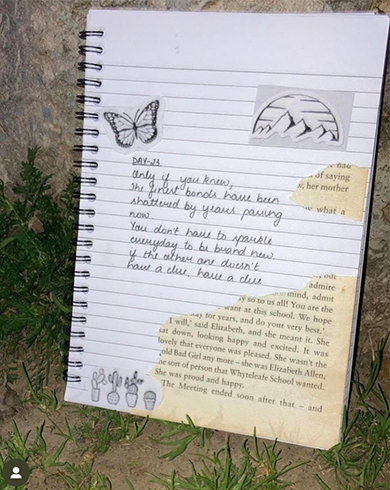 had
of saying
, her mother
what a
Only if you knew,
The finest bonds have been
shattered by years passing
now
You don't have to sparkle
everyday to be brand new
if the other one doesn't
have a clue, have a clue
admire
mind, admit
y so to us all! You are the
want at this school. We hope
day for years, and do your very best.'
I will,' said Elizabeth, and she meant it. She
sat down, looking happy and excited. It was
lovely that everyone was pleased. She wasn't the
old Bad Girl any more – she was Elizabeth Allen,
he sort of person that Whyteleafe School wanted.
She was proud and happy.
The Meeting ended soon after that – and